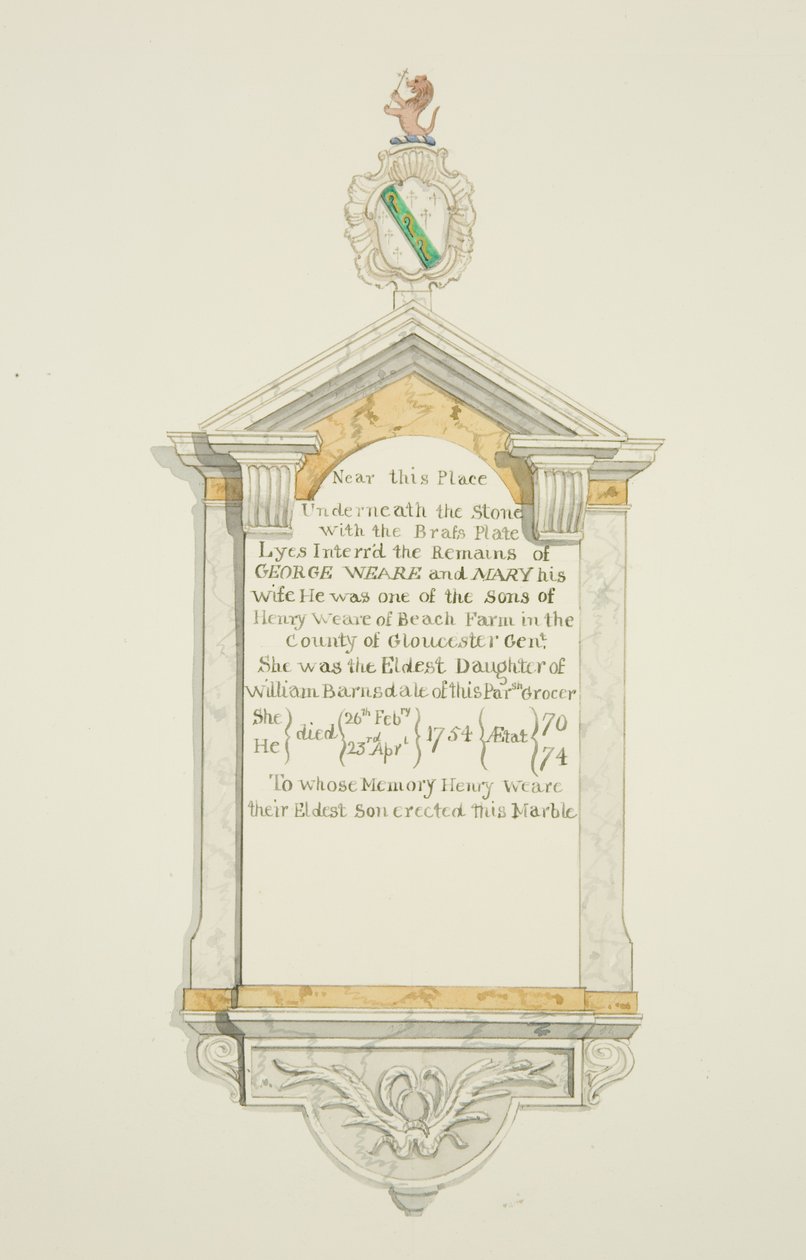 Near this Place
Underneath the Stone
with the Braſs Plate
Lyes Interr'd the Remains of
GEORGE WEARE and MARY his
wife He was one of the Sons of
Henry Weare of Beach Farm in the
County of Gloucester Genᵗ
She was the Eldest Daughter of
William Barnsdale of this Parˢʰ Grocer
She He } died { 26ᵗʰ Febʳʸ 23ʳᵈ Aprˡ } 1754 { Ætat } 70 74
To whose Memory Henry Weare
their Eldest Son erected this Marble